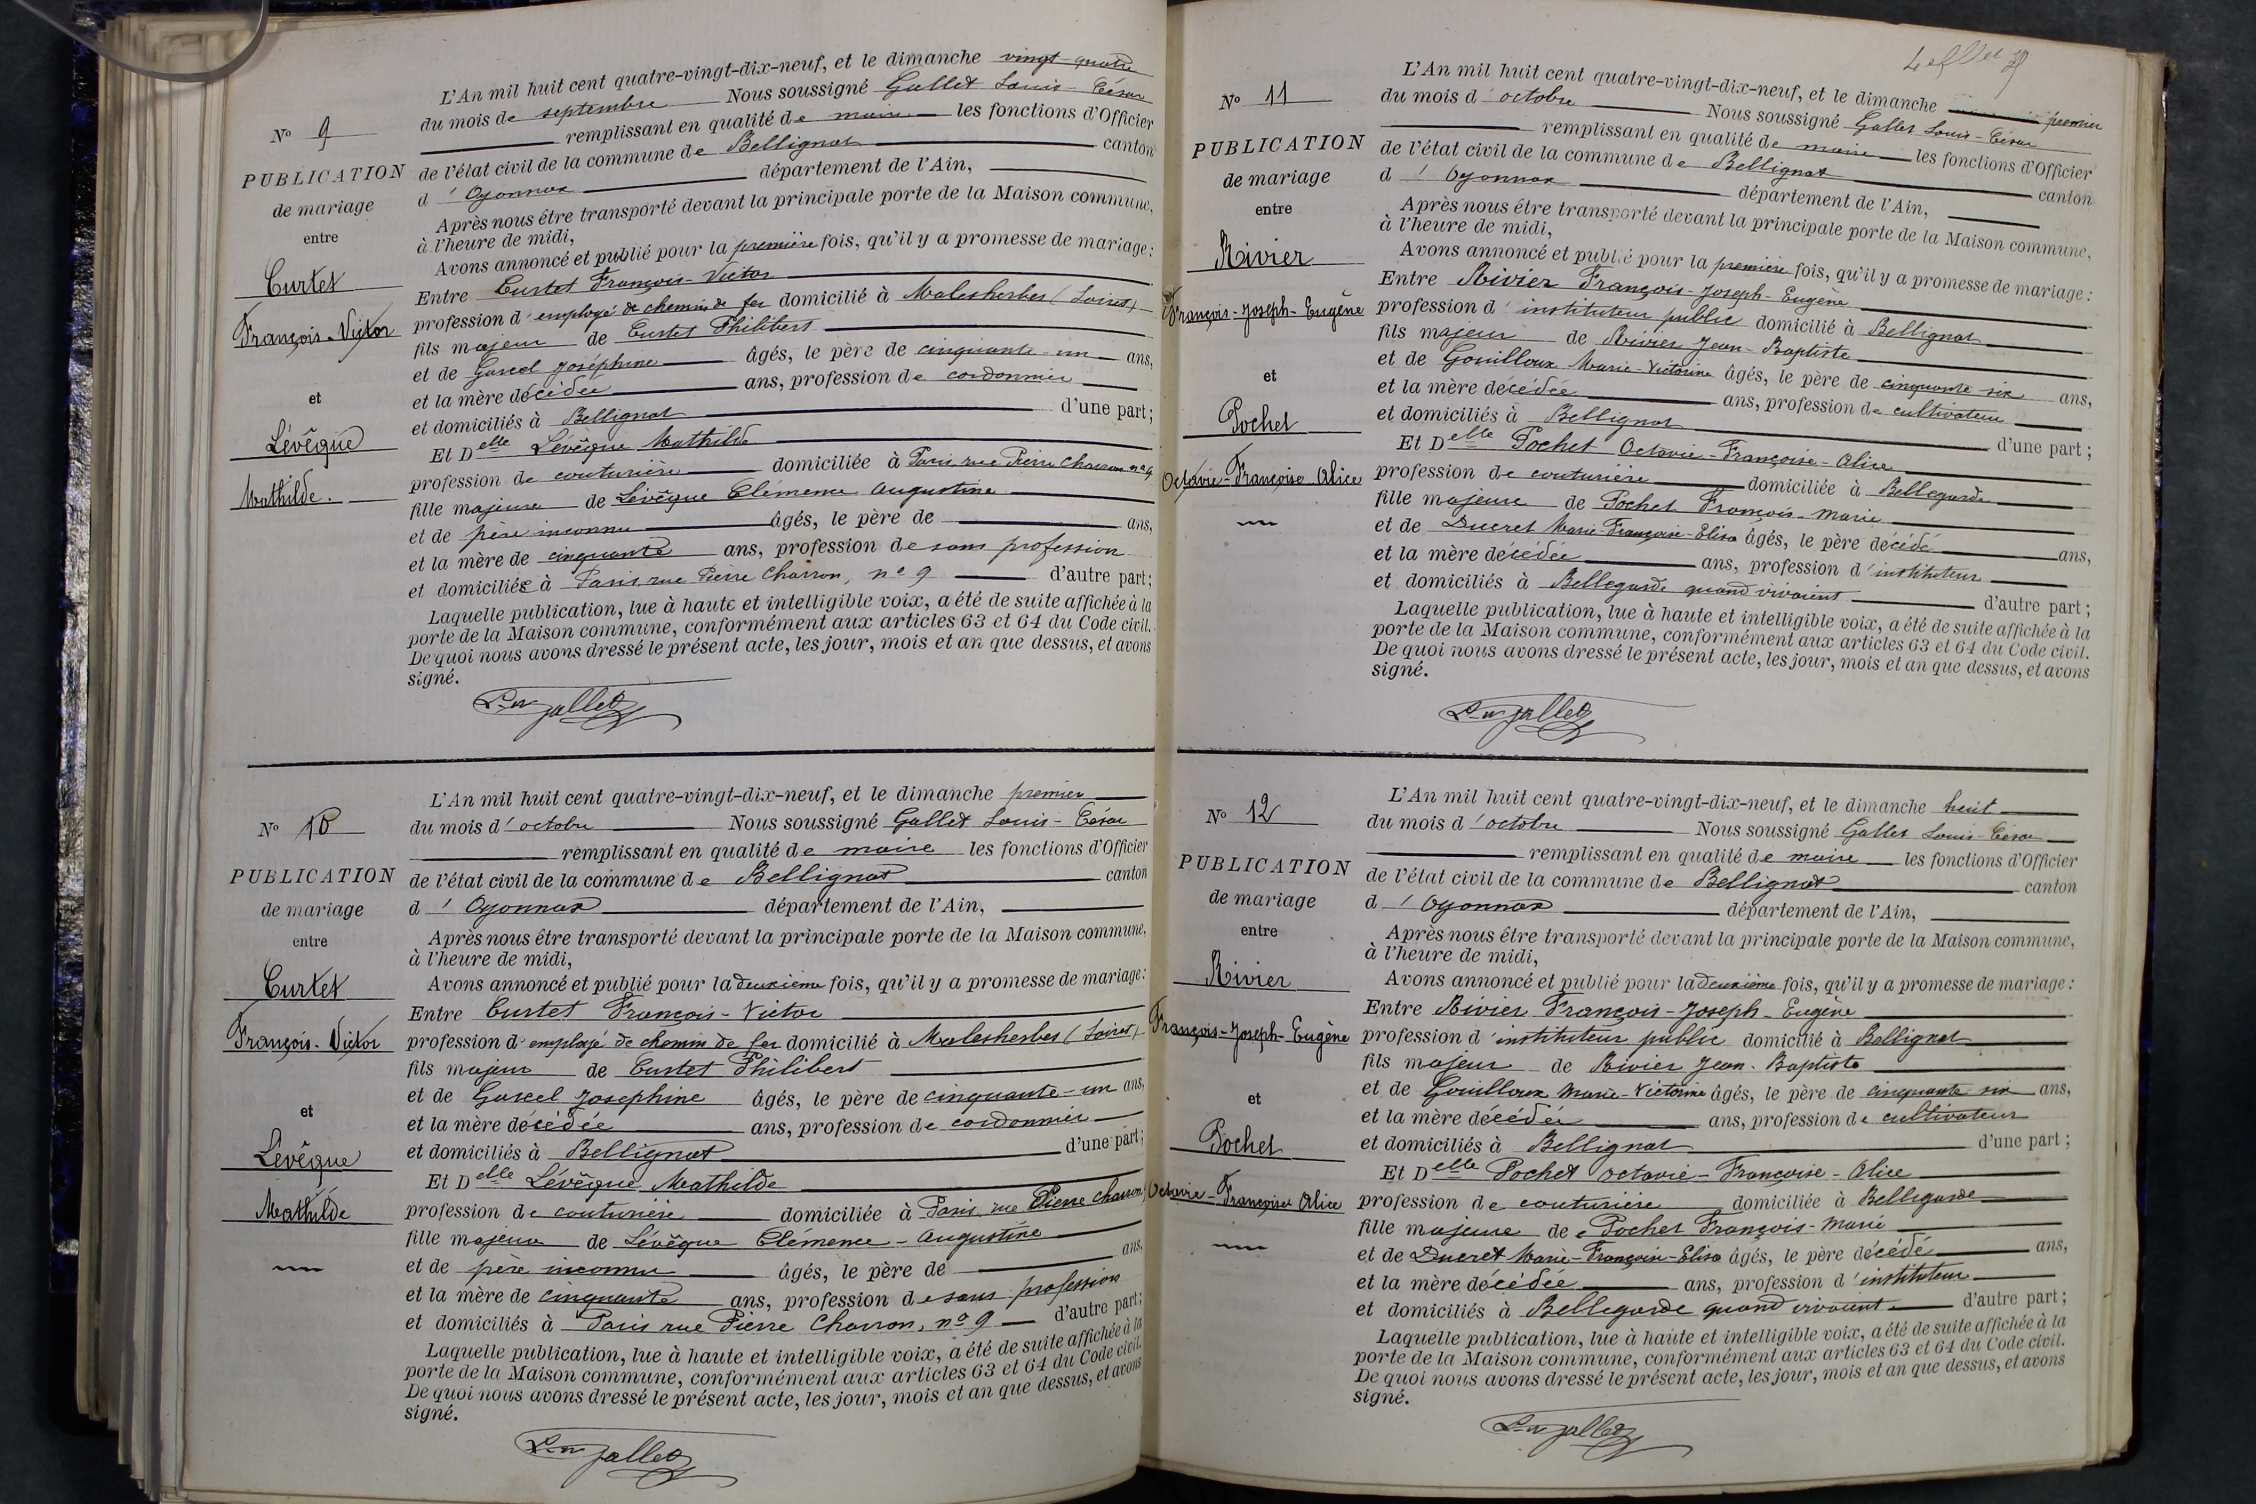 N° 9
PUBLICATION
de mariage
entre
Curtet
François-Victor
et
Lévêque
Mathilde.
L'An mil huit cent quatre-vingt-dix-neuf, et le dimanche vingt-quatre
du mois de septembre Nous soussigné Gallet Louis-César
remplissant en qualité de maire les fonctions d'Officier
de l'état civil de la commune de Bellignat canton
d'Oyonnax département de l'Ain,
Après nous être transporté devant la principale porte de la Maison commune,
à l'heure de midi,
Avons annoncé et publié pour la première fois, qu'il y a promesse de mariage:
Entre Curtet François-Victor
profession d'employé de chemin de fer domicilié à Malesherbes (Loiret)
fils majeur de Curtet Philibert
et de Garcel Joséphine âgés, le père de cinquante-un ans,
et la mère décédée ans, profession de cordonnier
et domiciliés à Bellignat d'une part;
Et Delle Lévêque Mathilde
profession de couturière domiciliée à Paris rue Pierre Charron n° 9
fille majeure de Lévêque Clémence Augustine
et de père inconnu âgés, le père de ans,
et la mère de cinquante ans, profession de sans profession
et domiciliés à Paris rue Pierre Charron, n° 9 d'autre part;
Laquelle publication, lue à haute et intelligible voix, a été de suite affichée à la
porte de la Maison commune, conformément aux articles 63 et 64 du Code civil.
De quoi nous avons dressé le présent acte, les jour, mois et an que dessus, et avons
signé.
Gallet
N° 10
PUBLICATION
de mariage
entre
Curtet
François-Victor
et
Lévêque
Mathilde
L'An mil huit cent quatre-vingt-dix-neuf, et le dimanche premier
du mois d'octobre Nous soussigné Gallet Louis-César
remplissant en qualité de maire les fonctions d'Officier
de l'état civil de la commune de Bellignat canton
d'Oyonnax département de l'Ain,
Après nous être transporté devant la principale porte de la Maison commune,
à l'heure de midi,
Avons annoncé et publié pour la deuxième fois, qu'il y a promesse de mariage:
Entre Curtet François-Victor
profession d'employé de chemin de fer domicilié à Malesherbes (Loiret)
fils majeur de Curtet Philibert
et de Garcel Josephine âgés, le père de cinquante-un ans,
et la mère décédée ans, profession de cordonnier
et domiciliés à Bellignat d'une part;
Et Delle Lévêque Mathilde
profession de couturière domiciliée à Paris rue Pierre Charron
fille majeure de Lévêque Clémence-Augustine
et de père inconnu âgés, le père de ans,
et la mère de cinquante ans, profession de sans profession
et domiciliés à Paris rue Pierre Charron, n° 9 d'autre part;
Laquelle publication, lue à haute et intelligible voix, a été de suite affichée à la
porte de la Maison commune, conformément aux articles 63 et 64 du Code civil.
De quoi nous avons dressé le présent acte, les jour, mois et an que dessus, et avons
signé.
Gallet
N° 11
PUBLICATION
de mariage
entre
Rivier
François-Joseph-Eugène
et
Pochet
Octavie-Françoise Alice
L'An mil huit cent quatre-vingt-dix-neuf, et le dimanche premier
du mois d'octobre Nous soussigné Gallet Louis-César
remplissant en qualité de maire les fonctions d'Officier
de l'état civil de la commune de Bellignat canton
d'Oyonnax département de l'Ain,
Après nous être transporté devant la principale porte de la Maison commune,
à l'heure de midi,
Avons annoncé et publié pour la première fois, qu'il y a promesse de mariage:
Entre Rivier François-Joseph-Eugène
profession d'instituteur public domicilié à Bellignat
fils majeur de Rivier Jean-Baptiste
et de Gouilloux Marie-Victorine âgés, le père de cinquante six ans,
et la mère décédée ans, profession de cultivateur
et domiciliés à Bellignat d'une part;
Et Delle Pochet Octavie-Françoise-Alice
profession de couturière domiciliée à Bellegarde
fille majeure de Pochet François-Marie
et de Ducret Marie-Françoise-Elisa âgés, le père décédé ans,
et la mère décédée ans, profession d'instituteur
et domiciliés à Bellegarde quand vivaient d'autre part;
Laquelle publication, lue à haute et intelligible voix, a été de suite affichée à la
porte de la Maison commune, conformément aux articles 63 et 64 du Code civil.
De quoi nous avons dressé le présent acte, les jour, mois et an que dessus, et avons
signé.
Gallet
N° 12
PUBLICATION
de mariage
entre
Rivier
François-Joseph-Eugène
et
Pochet
Octavie-Françoise Alice
L'An mil huit cent quatre-vingt-dix-neuf, et le dimanche huit
du mois d'octobre Nous soussigné Gallet Louis-César
remplissant en qualité de maire les fonctions d'Officier
de l'état civil de la commune de Bellignat canton
d'Oyonnax département de l'Ain,
Après nous être transporté devant la principale porte de la Maison commune,
à l'heure de midi,
Avons annoncé et publié pour la deuxième fois, qu'il y a promesse de mariage:
Entre Rivier François-Joseph-Eugène
profession d'instituteur public domicilié à Bellignat
fils majeur de Rivier Jean-Baptiste
et de Gouilloux Marie-Victorine âgés, le père de cinquante six ans,
et la mère décédée ans, profession de cultivateur
et domiciliés à Bellignat d'une part;
Et Delle Pochet Octavie-Françoise-Alice
profession de couturière domiciliée à Bellegarde
fille majeure de Pochet François-Marie
et de Ducret Marie-Françoise-Elisa âgés, le père décédé ans,
et la mère décédée ans, profession d'instituteur
et domiciliés à Bellegarde quand vivaient d'autre part;
Laquelle publication, lue à haute et intelligible voix, a été de suite affichée à la
porte de la Maison commune, conformément aux articles 63 et 64 du Code civil.
De quoi nous avons dressé le présent acte, les jour, mois et an que dessus, et avons
signé.
Gallet